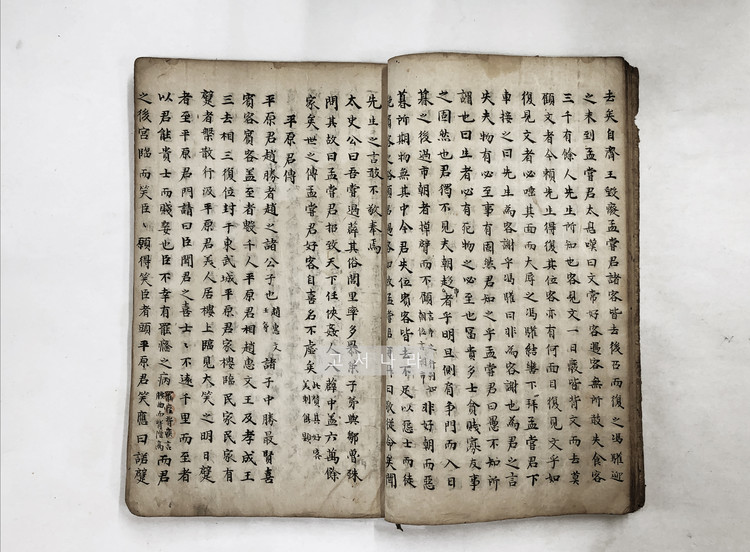 去矣自齊王毁廢孟嘗君諸客皆去後召而復之馮驩迎
之未到孟嘗君太息嘆曰文常好客遇客無所敢失食客
三千有餘人先生所知也客見文一日廢皆背文而去莫
顧文者今賴先生得復其位客亦有何面目復見文乎如
復見文者必唾其面而大辱之馮驩結轡下拜孟嘗君下
車接之曰先生爲客謝乎馮驩曰非爲客謝也爲君之言
失夫物有必至事有固然君知之乎孟嘗君曰愚不知所
謂也曰生者必有死物之必至也冨貴多士貧賤寡友事
之固然也君獨不見夫朝趍者乎明旦側肩爭門而入日
暮之後過市朝者掉臂而不顧非好朝而惡
暮所期物無其中今君失位賓客皆去不足以怨士而徒
絶賓客之路願君遇客如故孟嘗君再拜曰敬從命矣聞
先生之言敢不敬奉焉
太史公曰吾嘗過薛其俗閭里率多暴桀子弟與鄒魯殊
問其故曰孟嘗君招致天下任俠姦人入薛中盖六萬餘
家矣世之傳孟嘗君好客自喜名不虛矣此贊其好客
平原君傳
平原君趙勝者趙之諸公子也趙惠文王弟諸子中勝最賢喜
賓客賓客盖至者數千人平原君相趙惠文王及孝成王
三去相三復位封于東武城平原君家樓臨民家民家有
躄者槃散行汲平原君美人居樓上臨見大笑之明日躄
者至平原君門請曰臣聞君之喜士士不遠千里而至者
以君能貴士而賤妾也臣不幸有罷癃之病而君
之後宮臨而笑臣臣願得笑臣者頭平原君笑應曰諾躄
고서나라